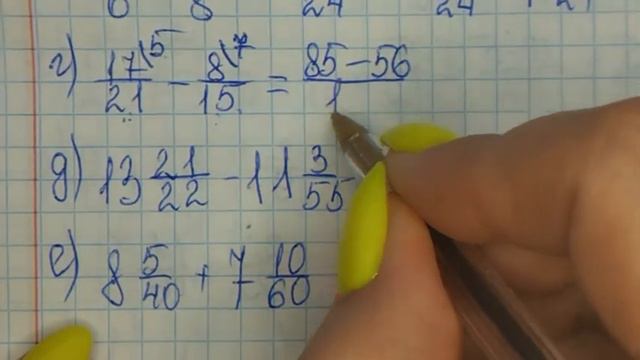 г) 17\5/21 - 8\7/15 = 85-56/1
д) 13 21/22 - 11 3/55
е) 8 5/40 + 7 10/60